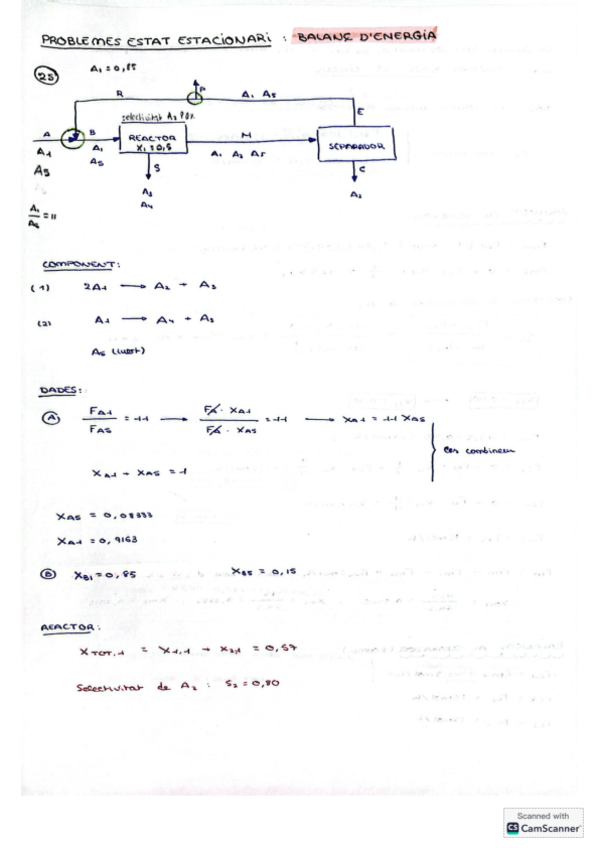 PROBLEMES ESTAT ESTACIONARI : BALANÇ D'ENERGIA
25
A1 = 0,85
R
P
A1 A5
E
selectivitat A2 80%
A
B
REACTOR
X1 = 0,5
M
SEPARADOR
A1
A5
A1
A5
A1 A2 A5
S
C
A3
A4
A2
A1/A5 = 11
COMPONENT:
(1) 2A1 → A2 + A3
(2) A1 → A4 + A3
A5 (inert)
DADES:
A FA1/FA5 = 11 → FA · XA1/FA · XA5 = 11 → XA1 = 11 XA5
Les combinem
XA1 + XA5 = 1
XA5 = 0,08333
XA1 = 0,9163
B XB1 = 0,85 XB5 = 0,15
REACTOR:
XTOT,1 = X1,1 + X2,1 = 0,57
Selectivitat de A2 : S2 = 0,80
Scanned with
CS CamScanner